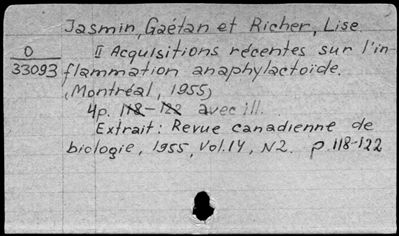 Jasmin, Gaétan et Richer, Lise
O
33093
II Acquisitions récentes sur l'in-
flammation anaphylactoïde.
(Montréal, 1955)
4p. 118-122 avec ill.
Extrait: Revue canadienne de
biologie, 1955, Vol.14, N2. p.118-122